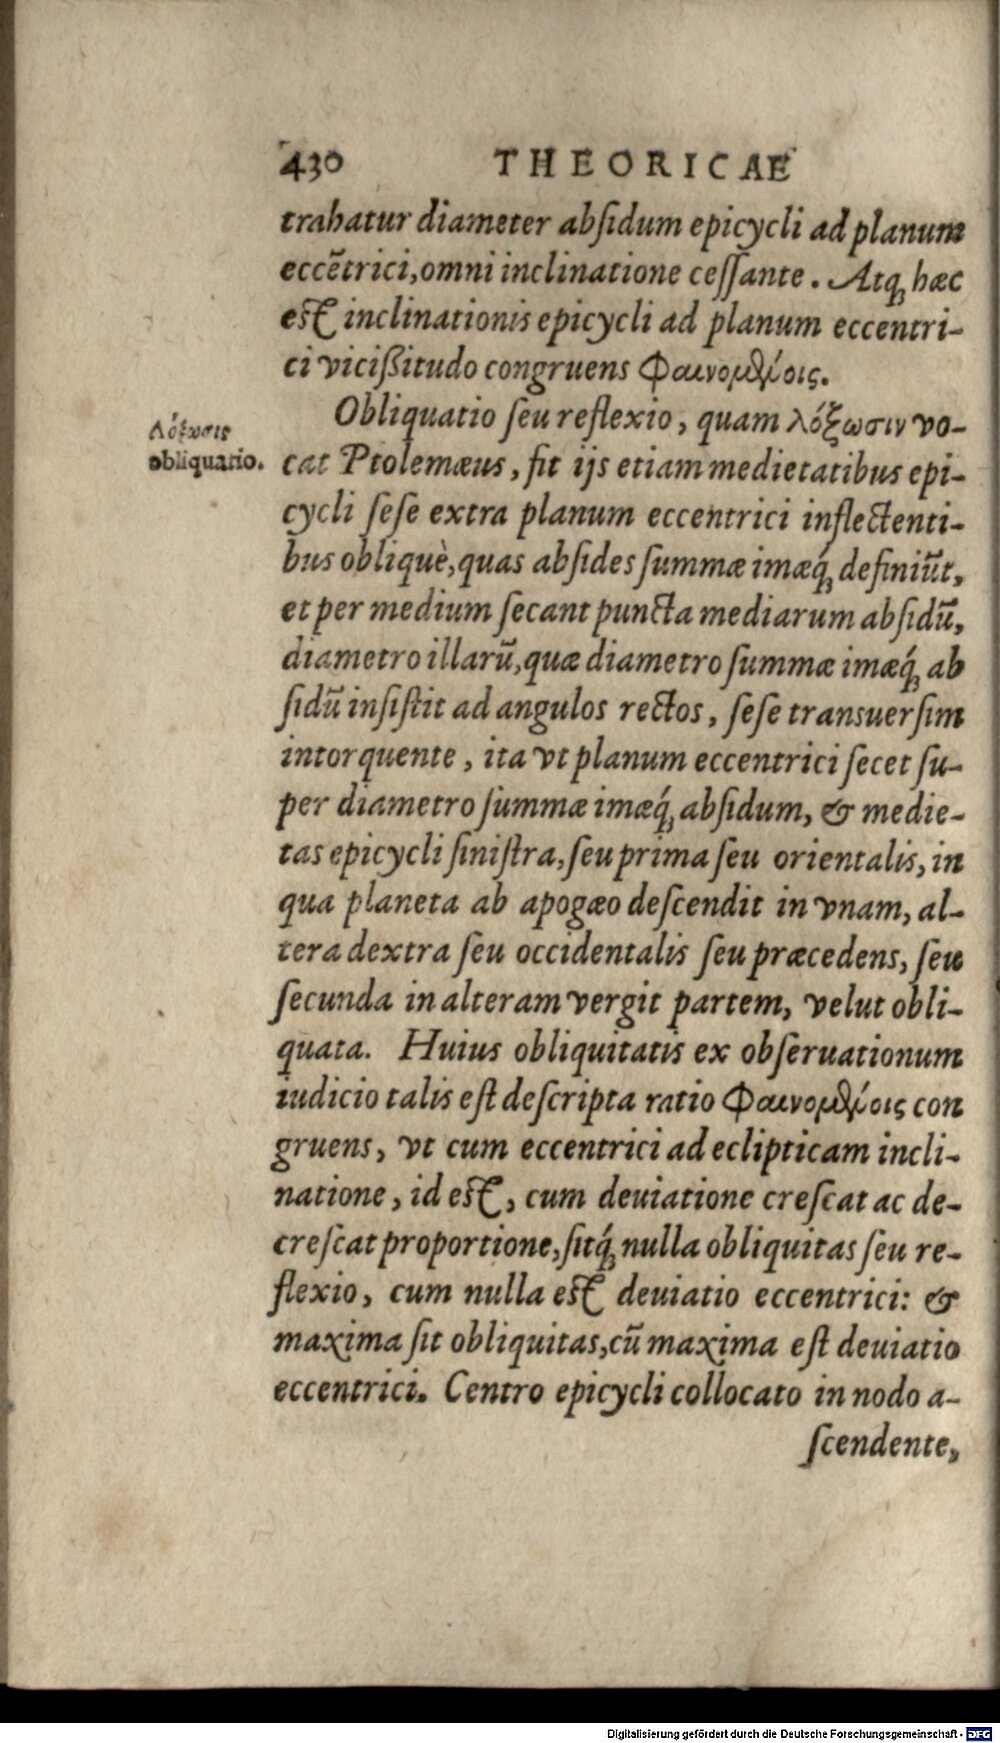 430 THEORICAE
trahatur diameter absidum epicycli ad planum
eccẽtrici, omni inclinatione cessante. Atq; hæc
est inclinationis epicycli ad planum eccentri-
ci vicißitudo congruens Φαινομένοις.
Obliquatio seu reflexio, quam λόξωσιν vo-
Λόξωσις
obliquatio.
cat Ptolemæus, fit ijs etiam medietatibus epi-
cycli sese extra planum eccentrici inflectenti-
bus obliquè, quas absides summæ imæq́; definiũt,
et per medium secant puncta mediarum absidũ,
diametro illarũ, quæ diametro summæ imæq́; ab
sidũ insistit ad angulos rectos, sese transuersim
intorquente, ita vt planum eccentrici secet su-
per diametro summæ imæq́; absidum, & medie-
tas epicycli sinistra, seu prima seu orientalis, in
qua planeta ab apogæo descendit in vnam, al-
tera dextra seu occidentalis seu præcedens, seu
secunda in alteram vergit partem, velut obli-
quata. Huius obliquitatis ex obseruationum
iudicio talis est descripta ratio Φαινομένοις con
gruens, vt cum eccentrici ad eclipticam incli-
natione, id est, cum deuiatione crescat ac de-
crescat proportione, sitq́; nulla obliquitas seu re-
flexio, cum nulla est deuiatio eccentrici: &
maxima sit obliquitas, cũ maxima est deuiatio
eccentrici. Centro epicycli collocato in nodo a-
scendente,
Digitalisierung gefördert durch die Deutsche Forschungsgemeinschaft - DFG